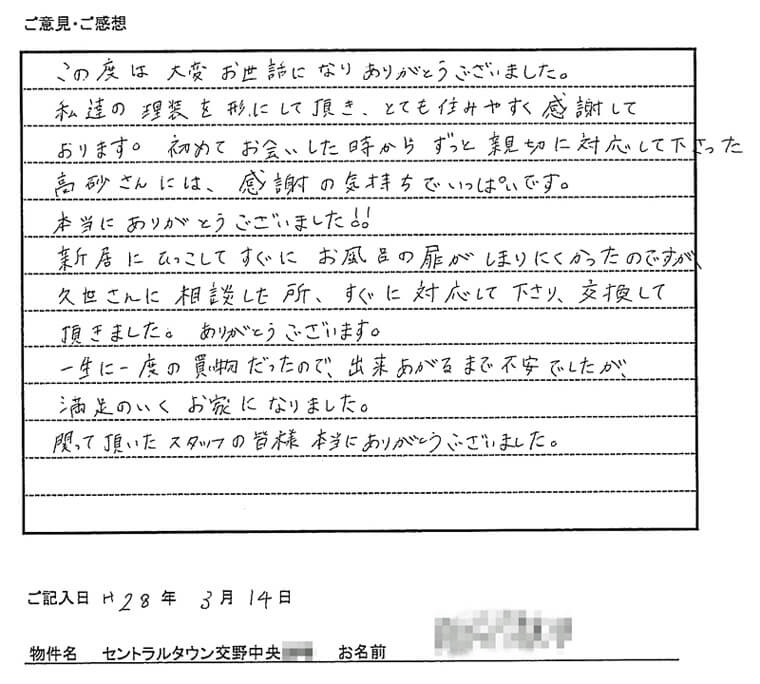 ご意見・ご感想
この度は大変お世話になりありがとうございました。
私達の理装を形にして頂き、とても住みやすく感謝して
おります。初めてお会いした時からずっと親切に対応して下さった
高砂さんには、感謝の気持ちでいっぱいです。
本当にありがとうございました!!
新居にひっこしてすぐにお風呂の扉がしまりにくかったのですが、
久世さんに相談した所、すぐに対応して下さり、交換して
頂きました。ありがとうございます。
一生に一度の買物だったので、出来あがるまで不安でしたが、
満足のいくお家になりました。
関って頂いたスタッフの皆様本当にありがとうございました。
ご記入日 H28年 3月14日
物件名 セントラルタウン交野中央 お名前